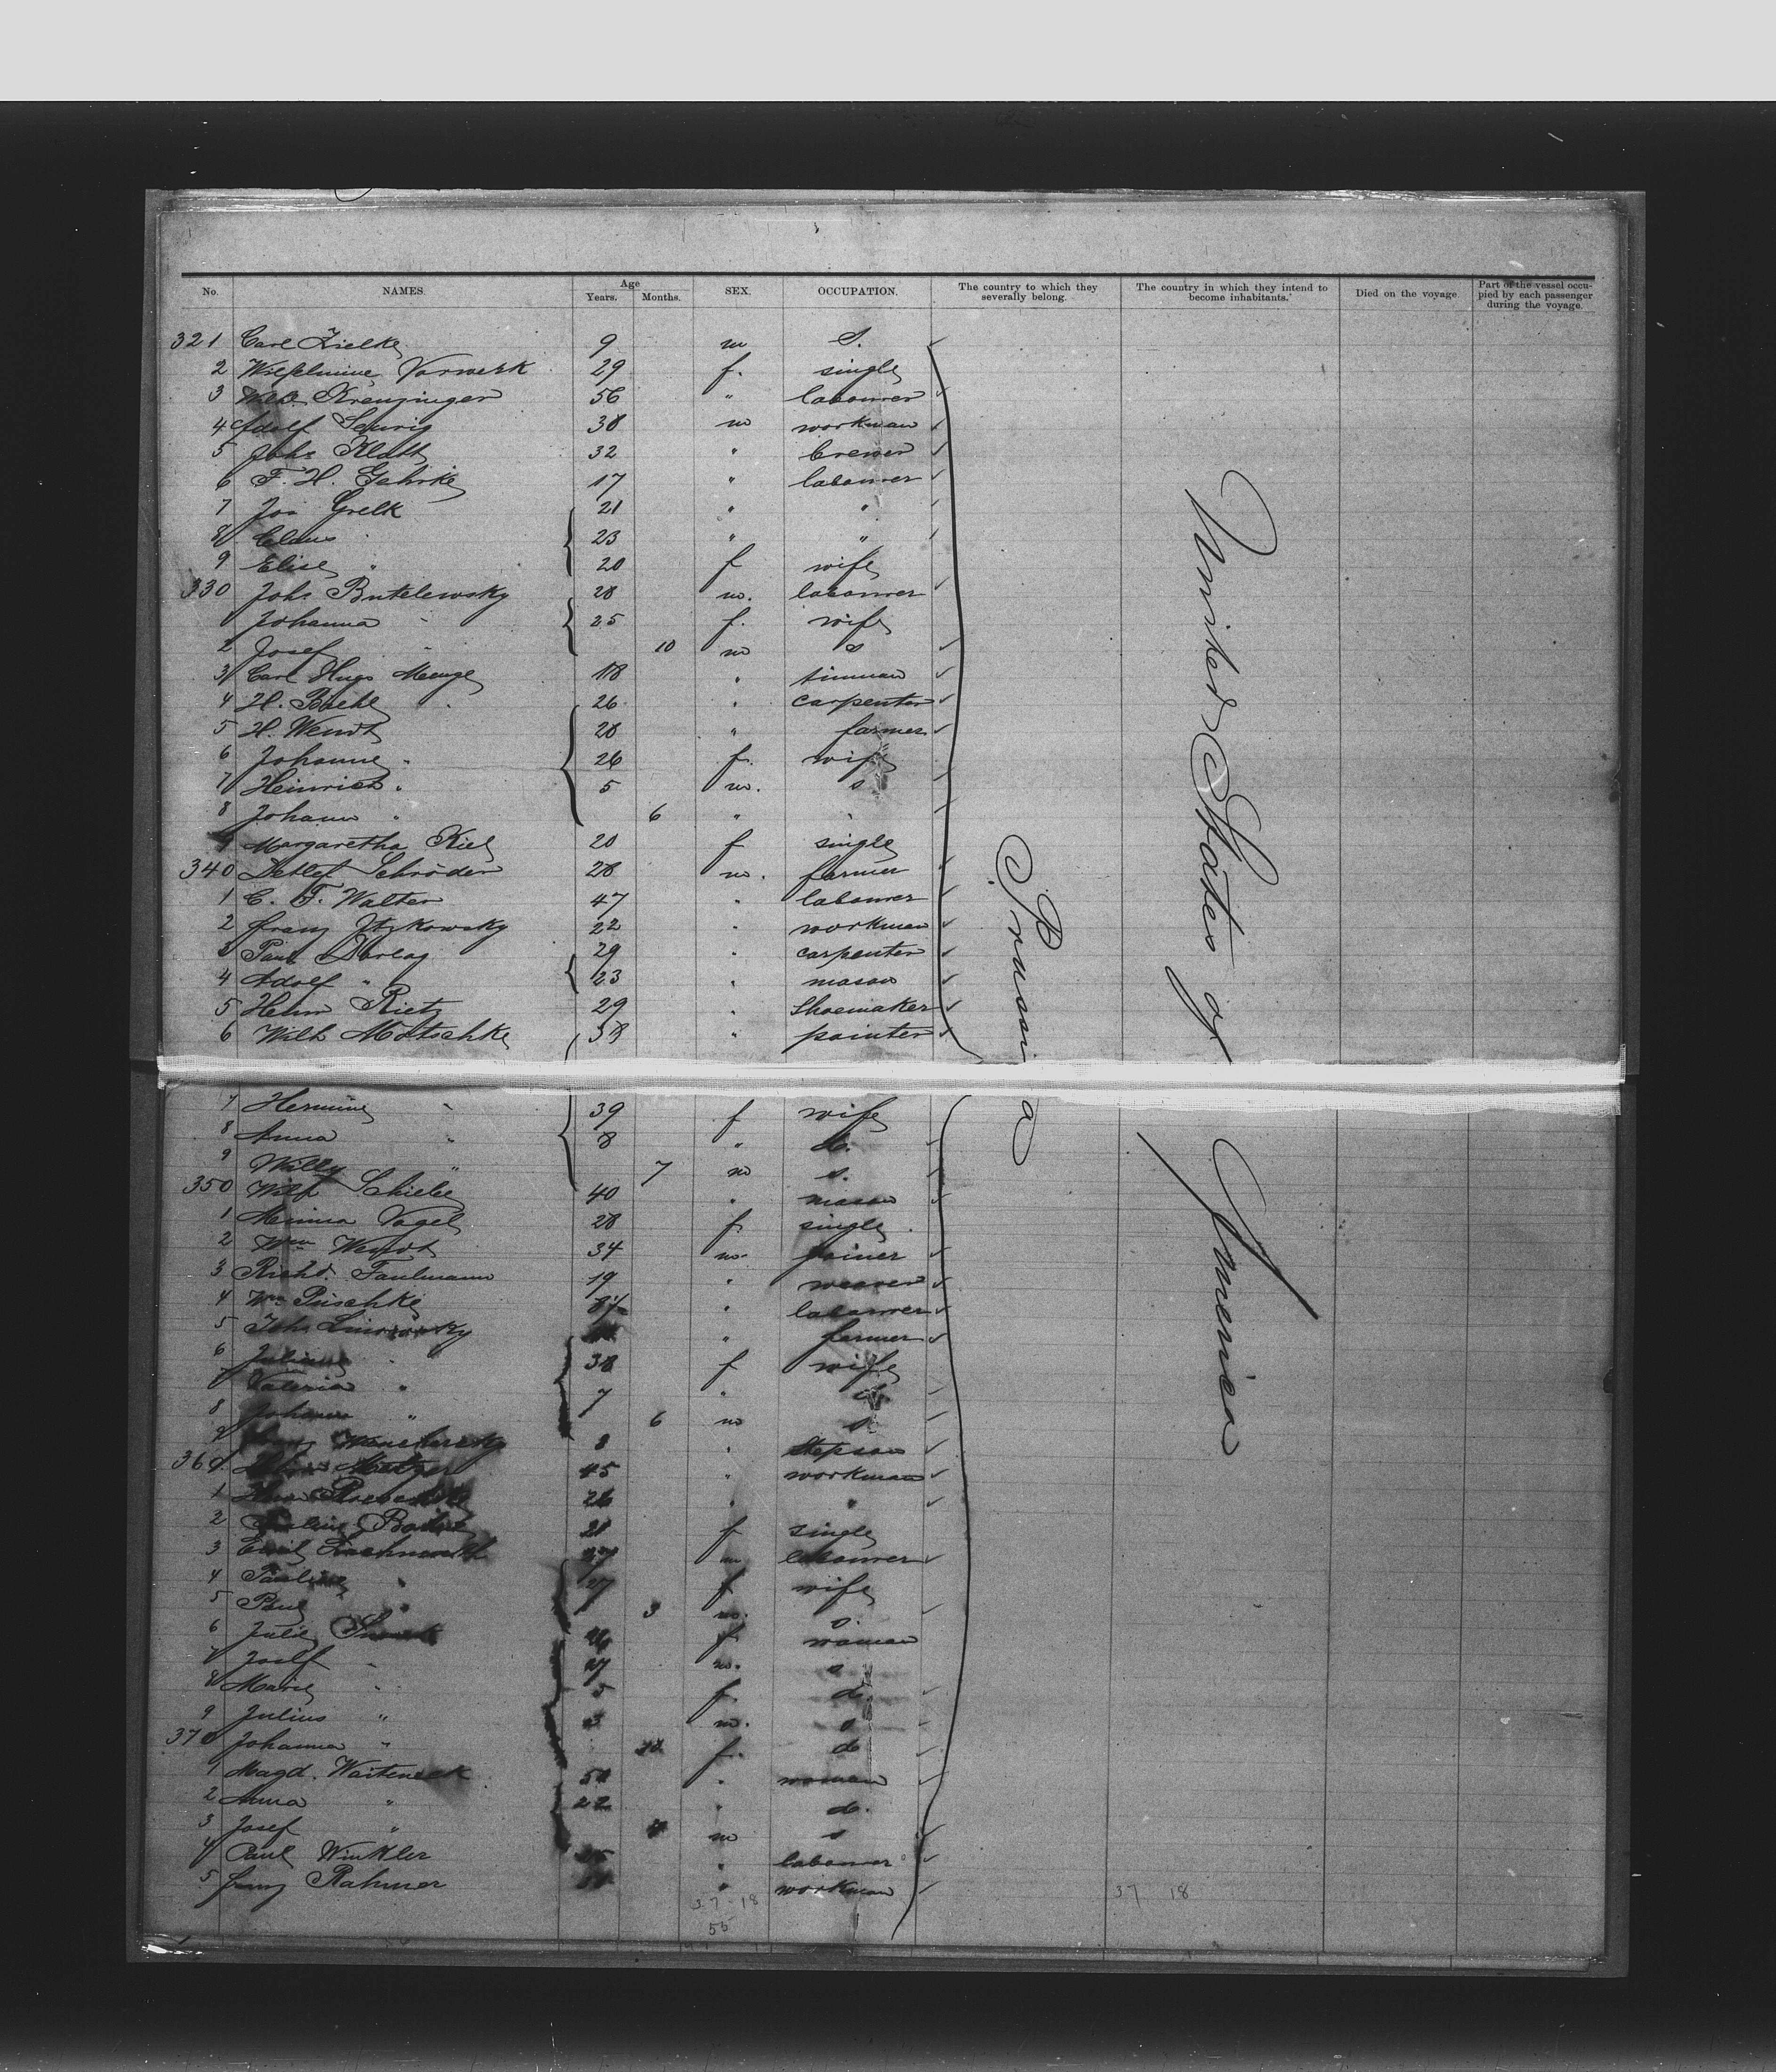 No. NAMES. Age Years. Months. SEX. OCCUPATION. The country to which they severally belong. The country in which they intend to become inhabitants. Died on the voyage Part of the vessel occupied by each passenger during the voyage.
321 Carl Zielke 9 m S.
2 Wilhelmine Vorwerk 29 f. single
3 Wilh. Krenzinger 56 " labourer
4 Adolf 38 m workman
5 Johs Klatt 32 " brewer
6 F. H. Gehrke 17 " labourer
7 Joa Grelk 21 " "
8 Claus " 23 " "
9 Elise " 20 f wife
330 Johs Butelewsky 28 m. labourer
1 Johanna " 25 f. wife
2 Josef " 10 m s
3 Carl Hugo Menge 18 " tinman
4 H. Biehl 26 " carpenter
5 H. Wendt 28 " farmer
6 Johanne " 26 f. wife
7 Heinrich " 5 m. s
8 Johann " 6 " "
9 Margaretha Kiel 20 f single
340 Detlef Schröder 28 m. farmer
1 C. F. Walter 47 " labourer
2 Franz Itzkowsky 22 " workman
3 Paul Dorlag 29 " carpenter
4 Adolf " 23 " mason
5 Helm Rietz 29 " Shoemaker
6 Wilh Motschke 38 " painter
7 Hermine " 39 f wife
8 Anna " 8 " d.
9 Willy " 7 m s.
350 Wilh Schiele 40 " mason
1 Minna Vogel 28 f. single
2 Wm Wendt 34 m. joiner
3 Richd. Faulmann 19 " weaver
4 Wm Püschke " labourer
5 Johs " farmer
6 38 f wife
7 Valeria " 7 " d.
8 Johann " 6 m s
9 8 " Stepson
360 Metzger 45 " workman
1 26 " "
2 21 f single
3 Emil 27 m labourer
4 Pauline " 27 f wife
5 Paul " 3 m. s.
6 Julie 26 f woman
7 Josef " 27 m. s
8 Marie " 5 f. d.
9 Julius " 3 m. s
370 Johanna " f. d
1 Magd. " woman
2 Anna " 22 " d.
3 Josef " m s
4 Paul Winkler " labourer
5 Franz Rahmer " workman
Prussia
United States of America
37 18
55
37 18